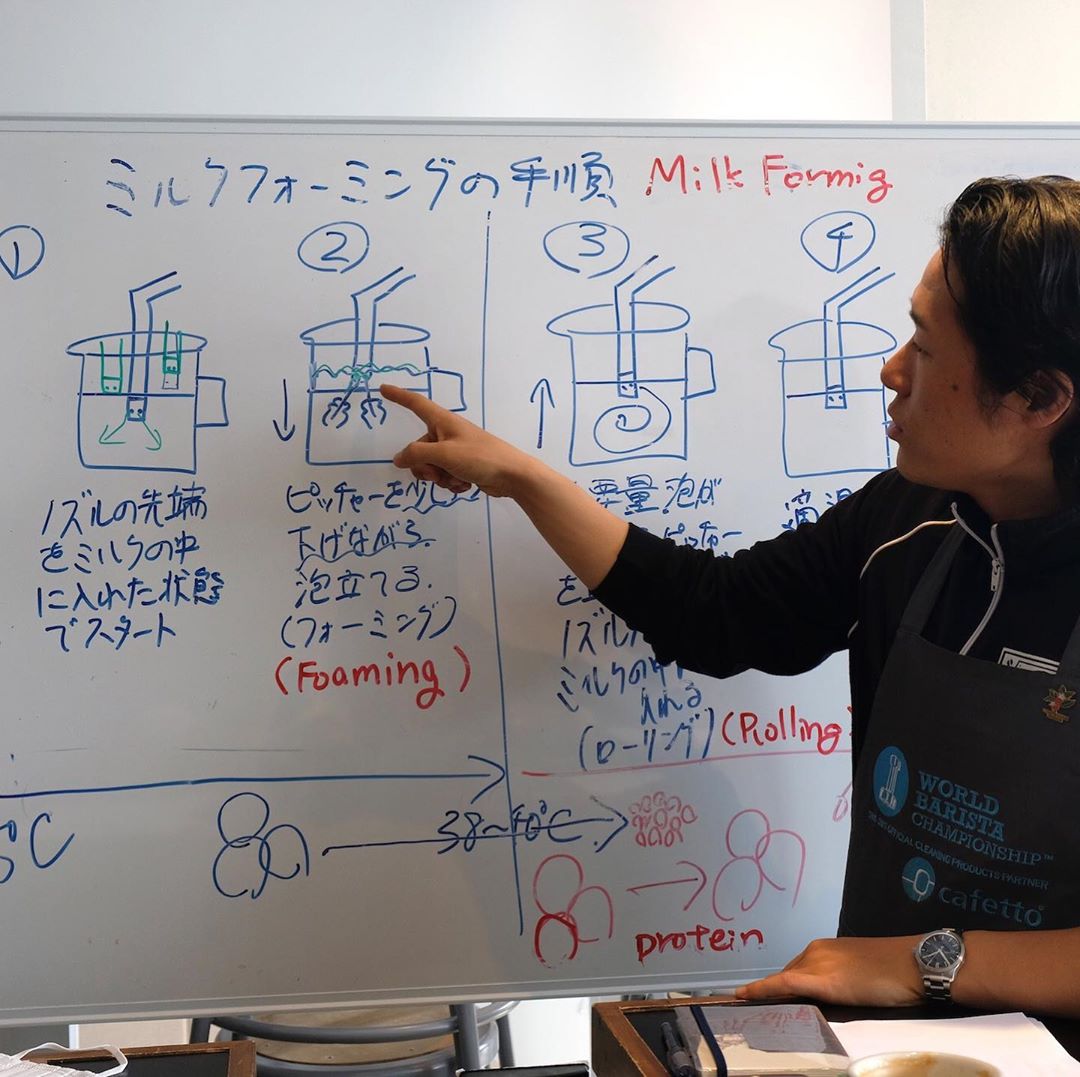 ミルクフォーミングの手順 Milk Formig
①
②
③
④
ノズルの先端
をミルクの中
に入れた状態
でスタート
ピッチャーを少しずつ
下げながら
泡立てる.
(フォーミング)
(Foaming)
量泡が
ピッチャー
を
ノズル
ミルクの中
入れる
(ローリング) (Rolling)
適温
℃
38~40℃
protein
WORLD
BARISTA
CHAMPIONSHIP™
THE OFFICIAL CLEANING PRODUCTS PARTNER
cafetto